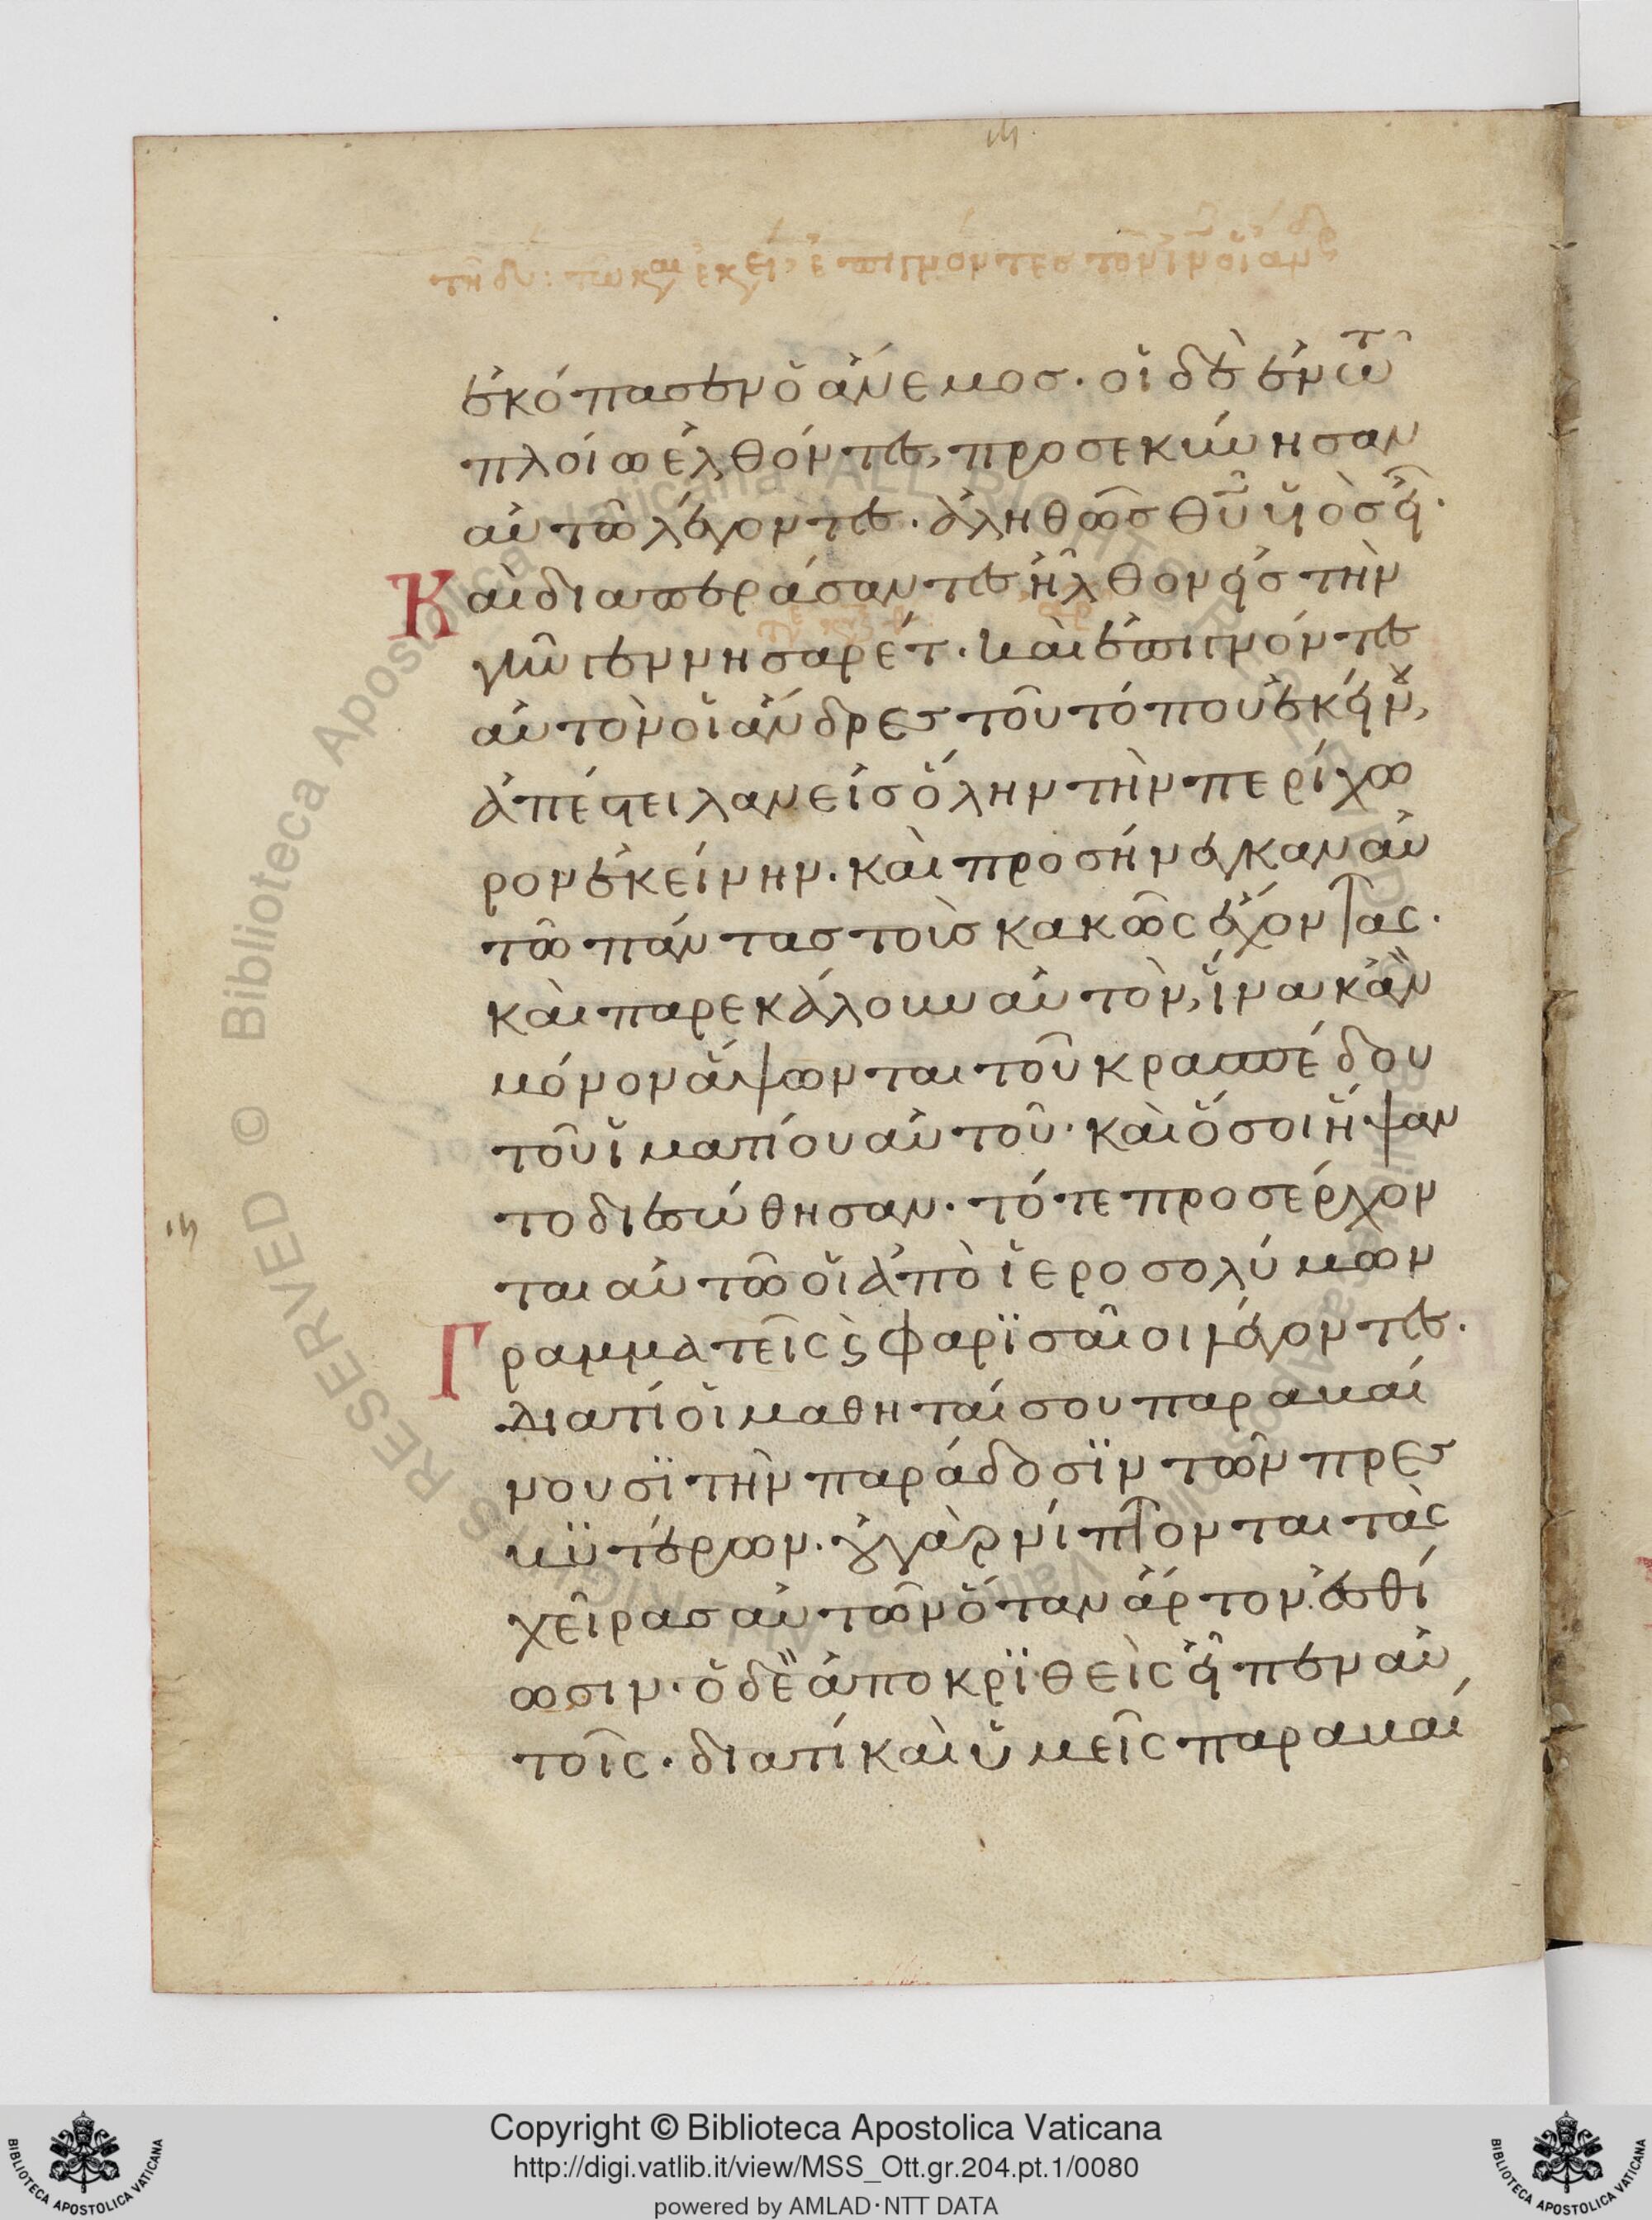 ἐκόπασεν ὁ ἄνεμοσ· οἱ δὲ ἐν τῶ
πλοίω ἐλθόντες, προσεκύνησαν
αὐτῶ λέγοντες· ἀληθῶσ θῦ υἱὸσ εἶ·
Καὶ διαπεράσαντες ἦλθον εἰσ τὴν
γῆν γεννησαρέτ· καὶ ἐπιγνόντες
αὐτὸν οἱ ἄνδρες τοῦ τόπου ἐκείν,
ἀπέστειλαν εἰσ ὅλην τὴν περίχω
ρον ἐκείνην· καὶ προσήνεγκαν αὐ
τῶ πάντασ τοὺσ κακῶς ἔχοντας·
καὶ παρεκάλουν αὐτὸν, ἵνα κἂν
μόνον ἅψωνται τοῦ κρασπέδου
τοῦ ἱματίου αὐτοῦ· καὶ ὅσοι ἥψαν
το διεσώθησαν· τότε προσέρχον
ται αὐτῶ οἱ ἀπὸ ἱεροσολύμων
Γραμματεῖς ϗ φαρϊσαῖοι λέγοντες·
Διατί οἱ μαθηταί σου παραβαί
νουσϊ τὴν παράδοσϊν τῶν πρεσ
βϋτέρων· οὐ γὰρ νίπτονται τὰς
χεῖρασ αὐτῶν ὅταν ἄρτον ἐσθί
ωσιν· ὁ δὲ ἀποκρϊθεὶς εἶπεν αὐ
τοῖς· διατί καὶ ὑμεῖς παραβαί
Copyright © Biblioteca Apostolica Vaticana
http://digi.vatlib.it/view/MSS_Ott.gr.204.pt.1/0080
powered by AMLAD·NTT DATA
BIBLIOTECA APOSTOLICA VATICANA
BIBLIOTECA APOSTOLICA VATICANA